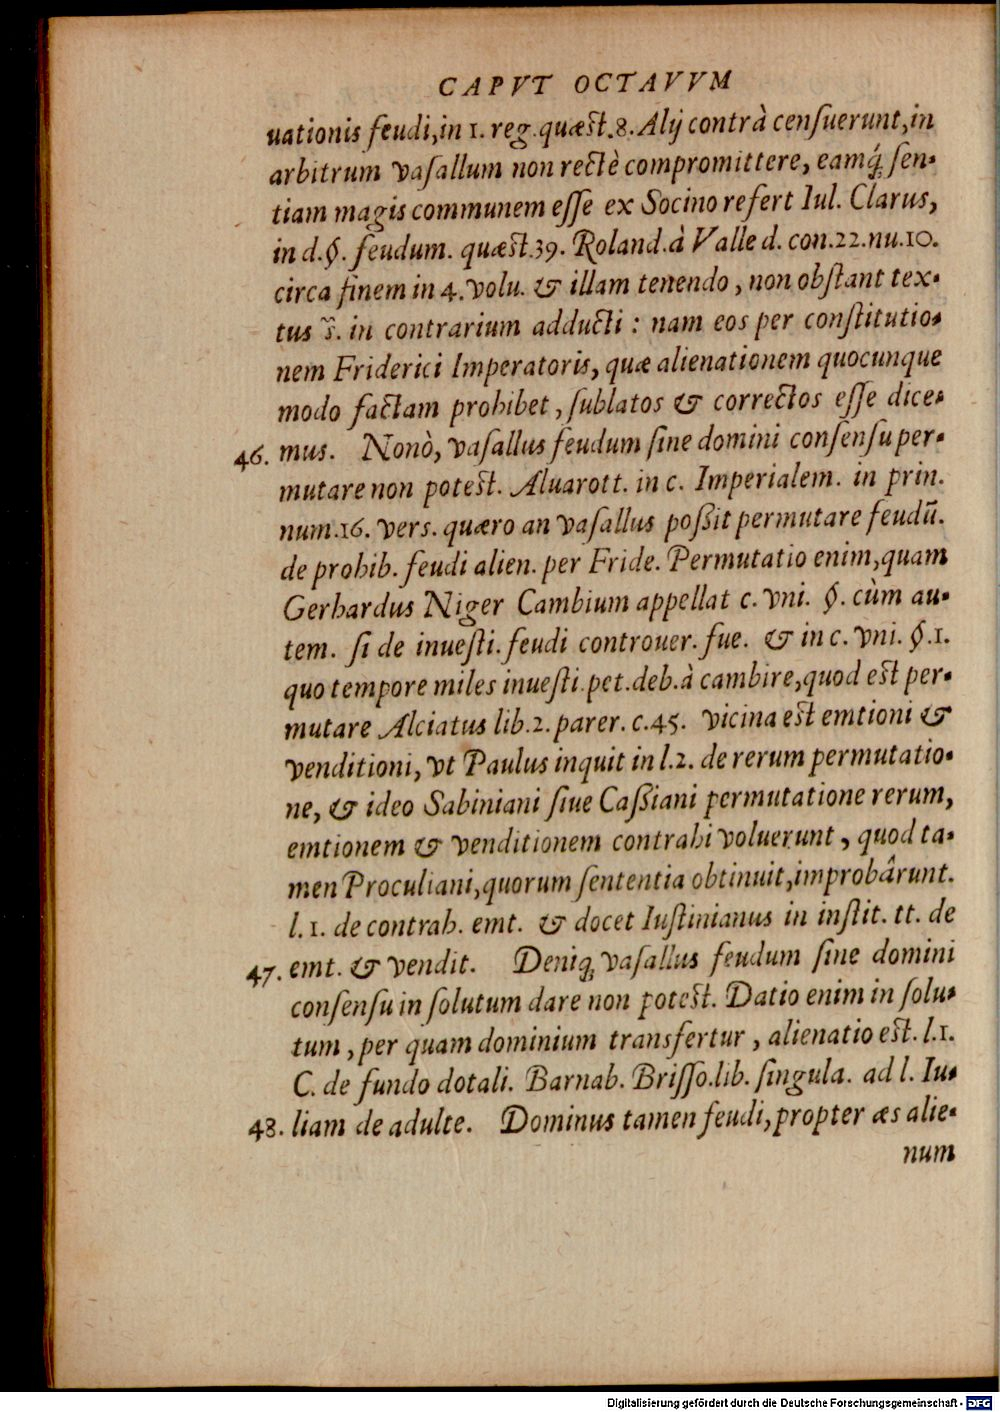 CAPVT OCTAVVM
uationis feudi, in 1. reg. quæst. 8. Alij contrà censuerunt, in
arbitrum vasallum non rectè compromittere, eamq́; sen-
tiam magis communem esse ex Socino refert Iul. Clarus,
in d. §. feudum. quæst. 39. Roland. à Valle d. con. 22. nu. 10.
circa finem in 4. volu. & illam tenendo, non obstant tex-
tus s̃. in contrarium adducti: nam eos per constitutio-
nem Friderici Imperatoris, quæ alienationem quocunque
modo factam prohibet, sublatos & correctos esse dice-
46. mus. Nonò, vasallus feudum sine domini consensu per-
mutare non potest. Aluarott. in c. Imperialem. in prin.
num. 16. vers. quæro an vasallus poßit permutare feudũ.
de prohib. feudi alien. per Fride. Permutatio enim, quam
Gerhardus Niger Cambium appellat c. vni. §. cùm au-
tem. si de inuesti. feudi controuer. fue. & in c. vni. §. 1.
quo tempore miles inuesti. pet. deb. à cambire, quod est per-
mutare Alciatus lib. 2. parer. c. 45. vicina est emtioni &
venditioni, vt Paulus inquit in l. 2. de rerum permutatio-
ne, & ideo Sabiniani siue Caßiani permutatione rerum,
emtionem & venditionem contrahi voluerunt, quod ta-
men Proculiani, quorum sententia obtinuit, improbârunt.
l. 1. de contrah. emt. & docet Iustinianus in instit. tt. de
47. emt. & vendit. Deniq; vasallus feudum sine domini
consensu in solutum dare non potest. Datio enim in solu-
tum, per quam dominium transfertur, alienatio est. l. 1.
C. de fundo dotali. Barnab. Brisso. lib. singula. ad l. Iu-
48. liam de adulte. Dominus tamen feudi, propter æs alie-
num
Digitalisierung gefördert durch die Deutsche Forschungsgemeinschaft - DFG